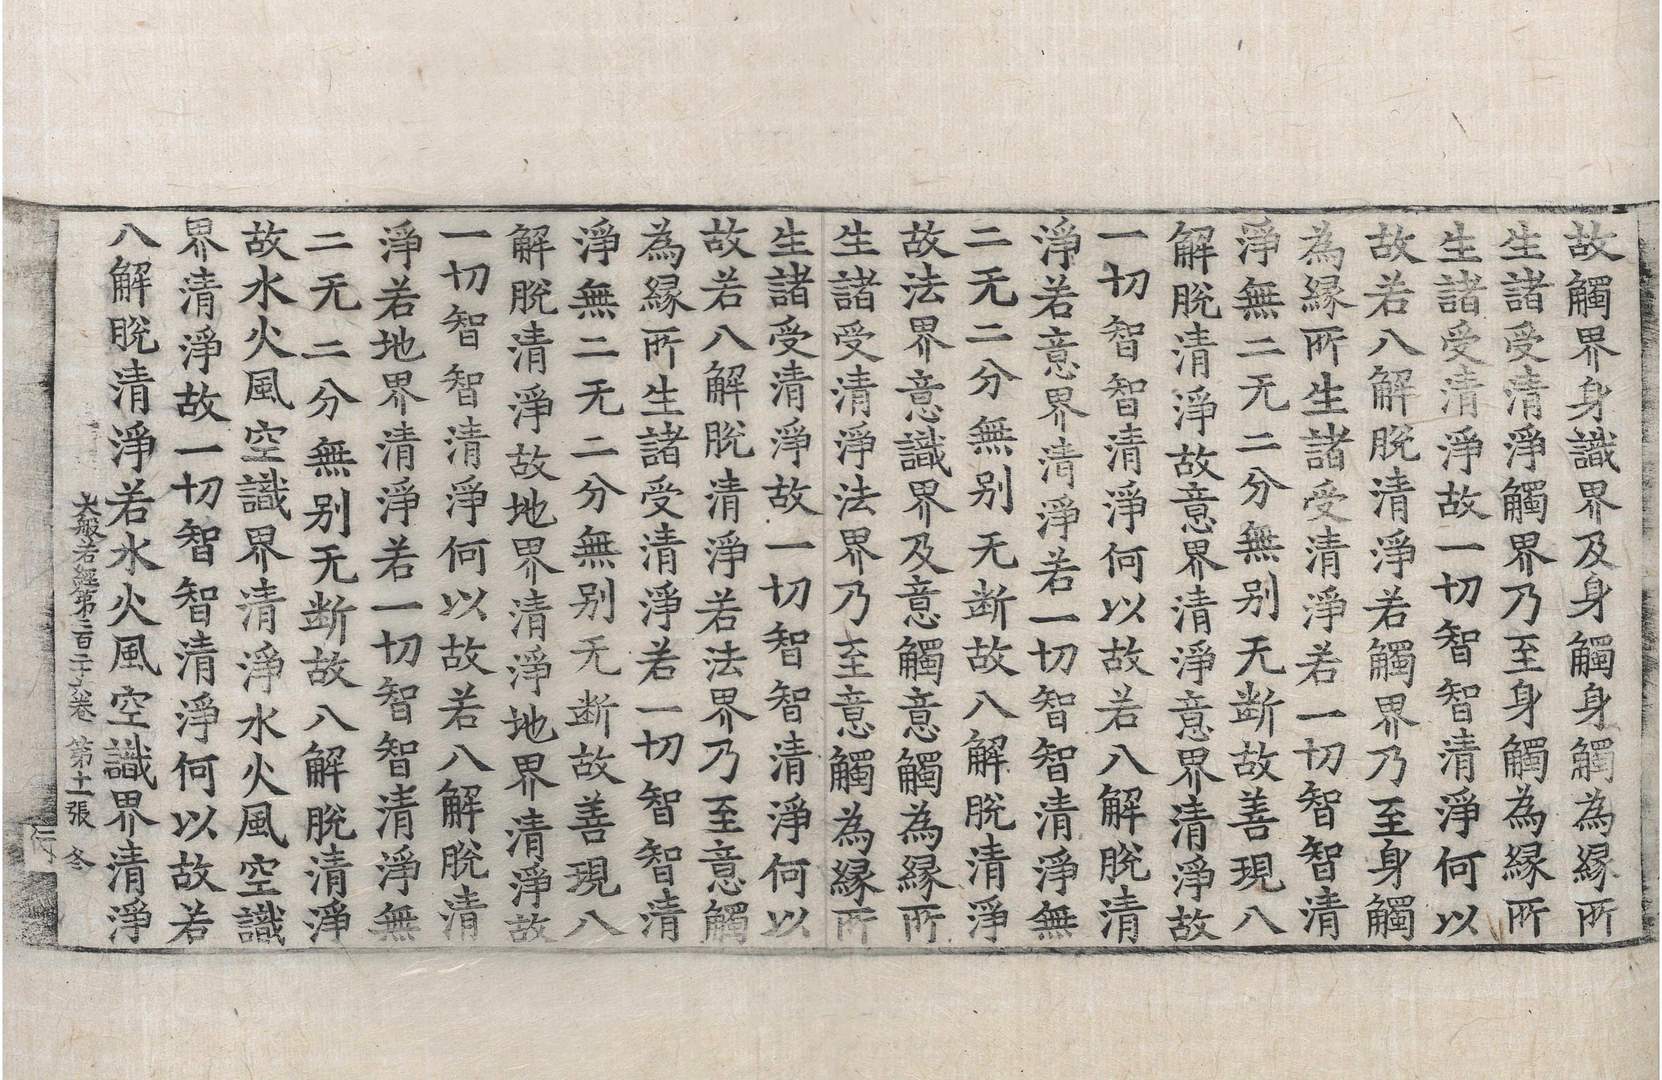 故觸界身識界及身觸身觸為縁所
生諸受清淨觸界乃至身觸為縁所
生諸受清淨故一切智智清淨何以
故若八解脫清淨若觸界乃至身觸
為縁所生諸受清淨若一切智智清
淨無二无二分無别无断故善現八
解脫清淨故意界清淨意界清淨故
一切智智清淨何以故若八解脫清
淨若意界清淨若一切智智清淨無
二无二分無别无断故八解脫清淨
故法界意識界及意觸意觸為縁所
生諸受清淨法界乃至意觸為縁所
生諸受清淨故一切智智清淨何以
故若八解脫清淨若法界乃至意觸
為縁所生諸受清淨若一切智智清
淨無二无二分無别无断故善現八
解脫清淨故地界清淨地界清淨故
一切智智清淨何以故若八解脫清
淨若地界清淨若一切智智清淨無
二无二分無别无断故八解脫清淨
故水火風空識界清淨水火風空識
界清淨故一切智智清淨何以故若
八解脫清淨若水火風空識界清淨
大般若經第二百二十六卷 第十一張 冬